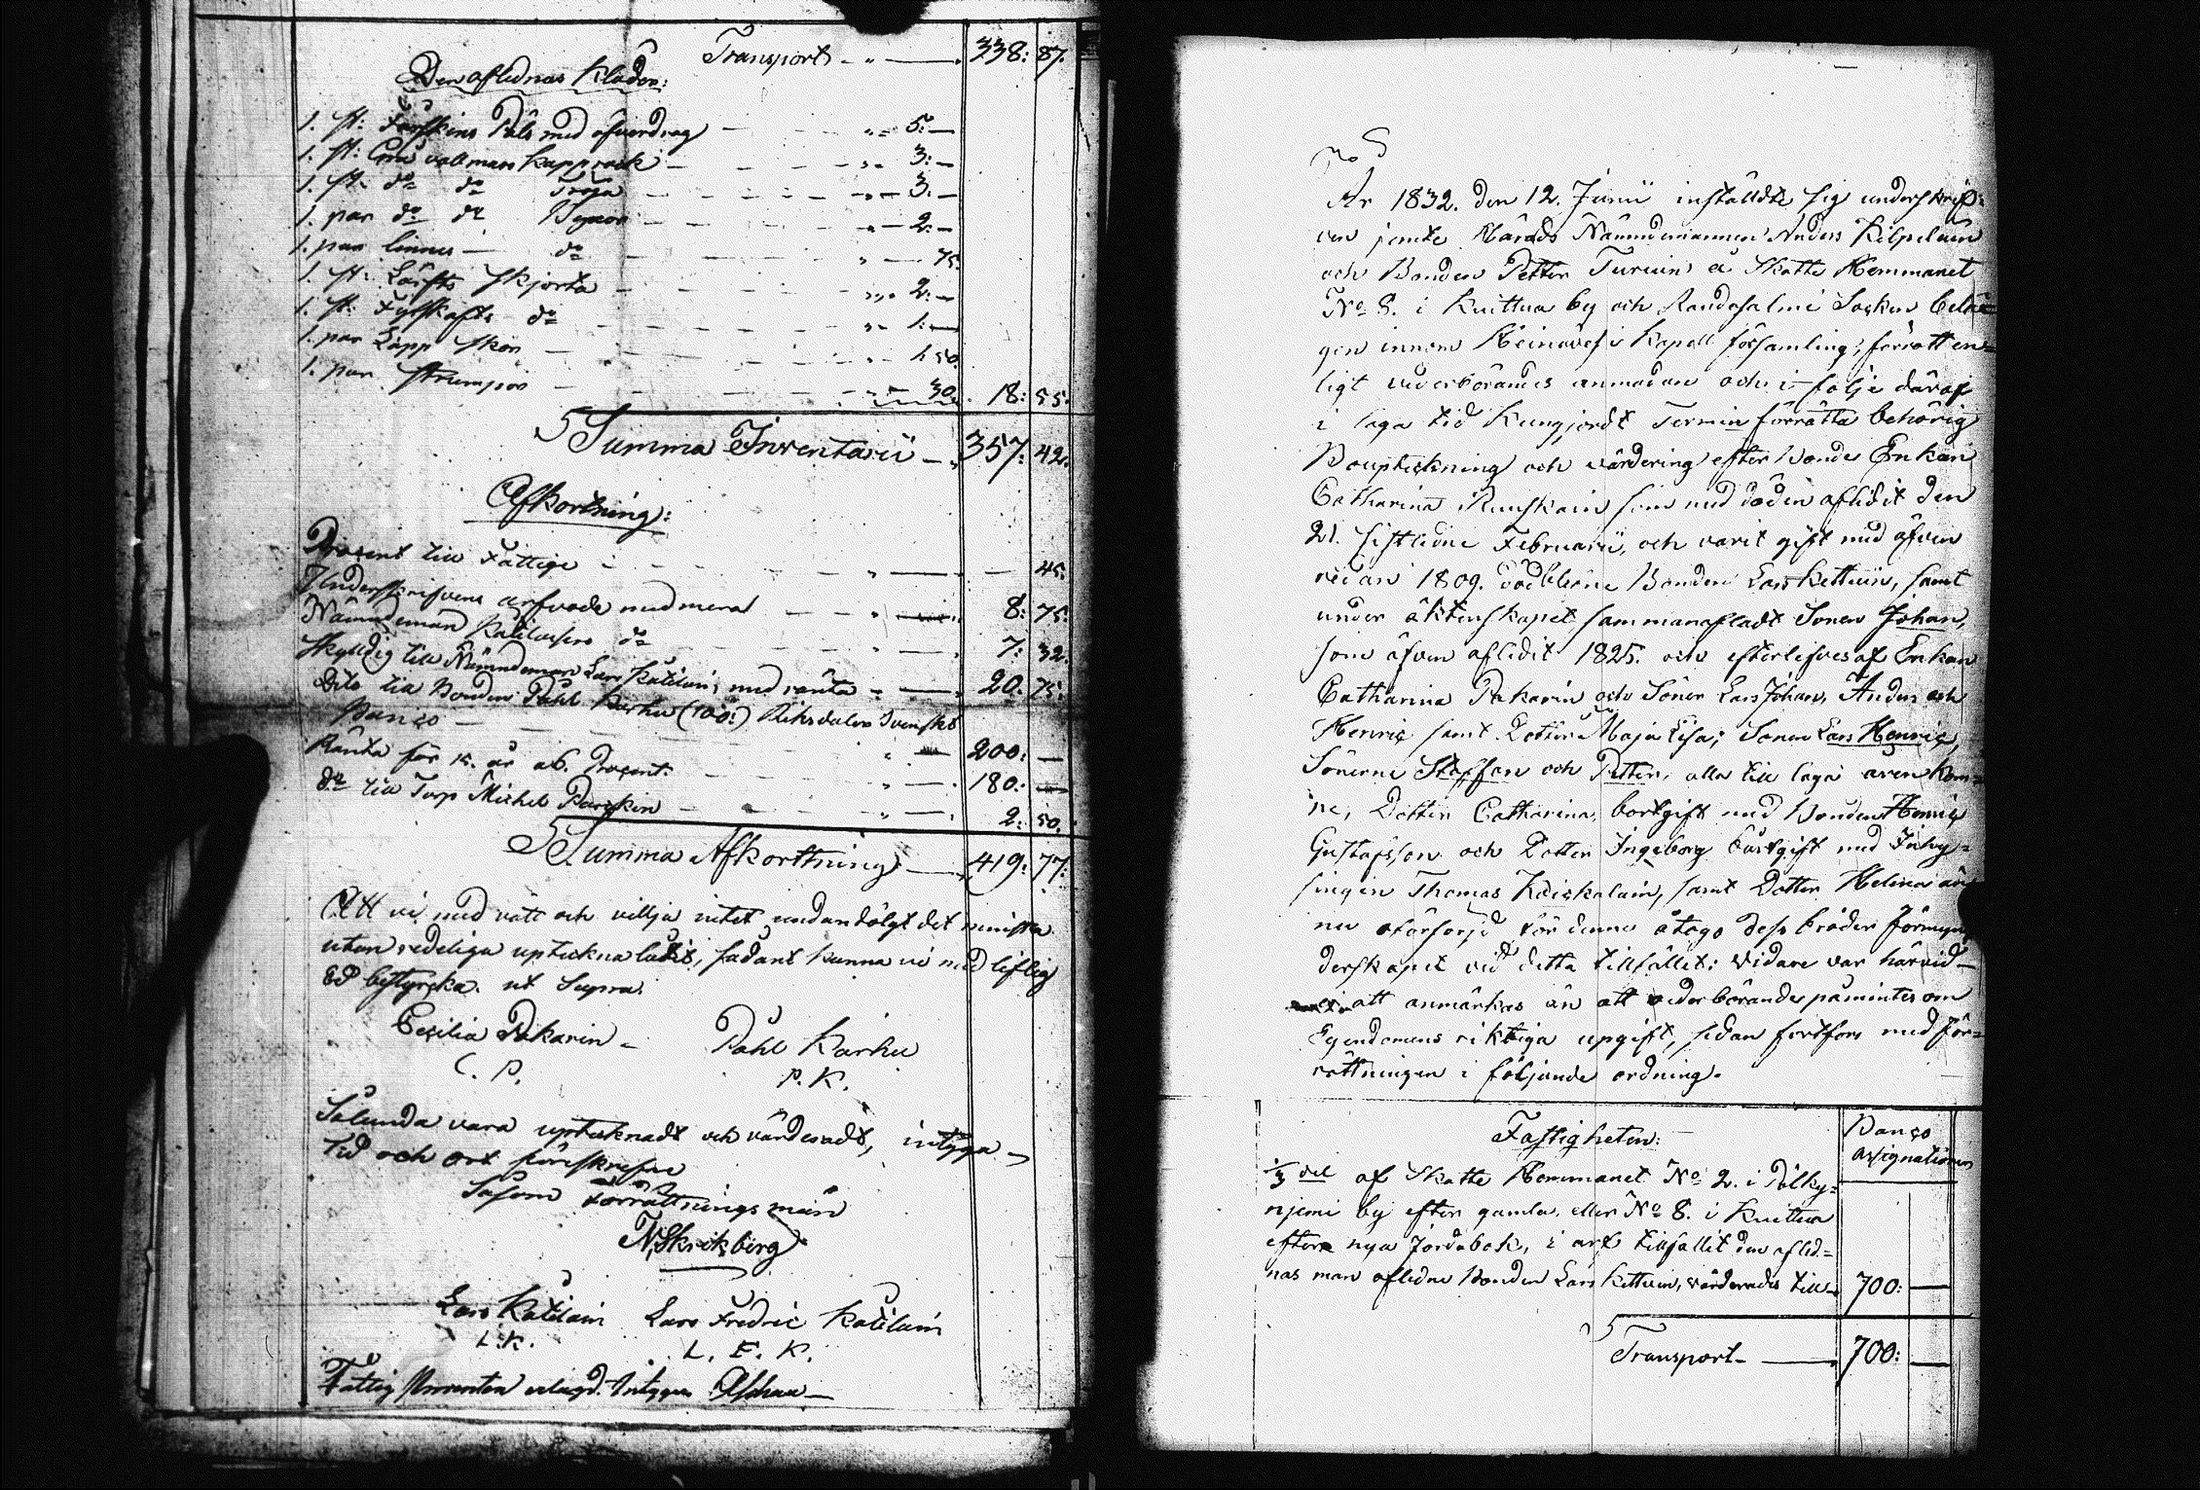 Transport - „ — 338: 87.
Den aflednas Kläder:
1. st: Fårskins Päls med öfverdrag - - „ 5: —
1. st: Grå vallmars Kapprock - - „ 3: —
1. st: do do Tröja - - „ 3. —
1. par do do Byxor - - „ 2. —
1. par linne — do - - „ — 75.
1. st: Lärfts Skjorta - - „ 2: —
1. st: Fyrskafts do - - „ 1: —
1. par Lapp Skor - - „ 1. 50.
1. par Strumpor - - „ — 30. 18: 55.
Summa Inventarii — „ 357: 42.
Afkortning:
Procent till Fattige - - „ — 45.
Underskrifvens arfvode med mera - - „ 8: 75.
Nämndemän Katilaisens do - - „ 7: 32.
Skyldig till Nämndeman Lars Katilain, med ränta - „ — 20. 75.
Dito till Bonden Påhl Karhu (100:) Riksdaler Svenskt
Banco — - - „ 200: —
Ränta för 15. år a 6. Procent. - - „ — 180: —
do till Torp Michel Parkin - - „ — 2: 50.
Summa Afkorttning — 419: 77.
Att vi med vett och villja intet undandölgt det minsta
utan redeliga uptekna låtit, sådant kunna vi med liflig
Ed bestyrcka. ut Supra.
Cecilia Pakarin - Påhl Karhu
C. P. P. K.
Sålunda vara upteknadt och värderadt, intyga
tid och ort föreskrefne
Såsom Förrättningsmän
N. Skrikberg
Lars Katilain Lars Fredric Katilain
L. K. L. F. K.
Fattig Procenten erlagd. Intygar
No 5
År 1832. den 12. Junii inställdte sig underskrif-
ven jemte Härads Nämndemannen Anders Kilpelain
och Bonden Petter Turuin å Skatte Hemmanet
No 8. i Kuittua by och Randasalmi Socken belä-
gen innom Heinävesi Kapell församling, för att en-
ligt vederbörandes anmodan och i följe däraf
i laga tid Kungjordt Termin förrätta behörig
Boupteckning och värdering efter Bonde Enkan
Catharina som med döden aflidit den
21. sistledne Februarii, och varit gift med äfven
redan 1809. död blefne Bonden Lars Kettuin, samt
under äktenskapet sammanafladt Sonen Johan,
som äfven aflidit 1825. och efterlefves af Enkan
Catharina Pakarin och Söner Lars Johan, Anders och
Henric samt Dotter Maja Lisa; Sonen Lars Henric,
Sönerne Staffan och Petter, alla till laga åren kom-
ne, Dotter Catharina, bortgift med Bonden Henric
Gustafsson och Dotter Ingeborg bortgift med Inhy-
singen Thomas Koiskalain, samt Dotter Helena än
nu oförsörjd för denne åtogs dess broder förmyn
derskapet vid detta tillfället: vidare var härvid
ei att anmärkas än att vederbörandes påmintes om
Egendomens riktiga upgift, sedan fortfors med för-
rättningen i följande ordning.
Fastigheten: Banco Assignationer
1/3 del af Skatte Hemmanet No 2. i Pölky-
njemi by efter gamla, eller No 8. i Kuittua
efter nya Jordabok, i arf tillfallit den afled-
nas man aflidne Bonden Lars Kettuin, värderades till 700: —
Transport — 700: —